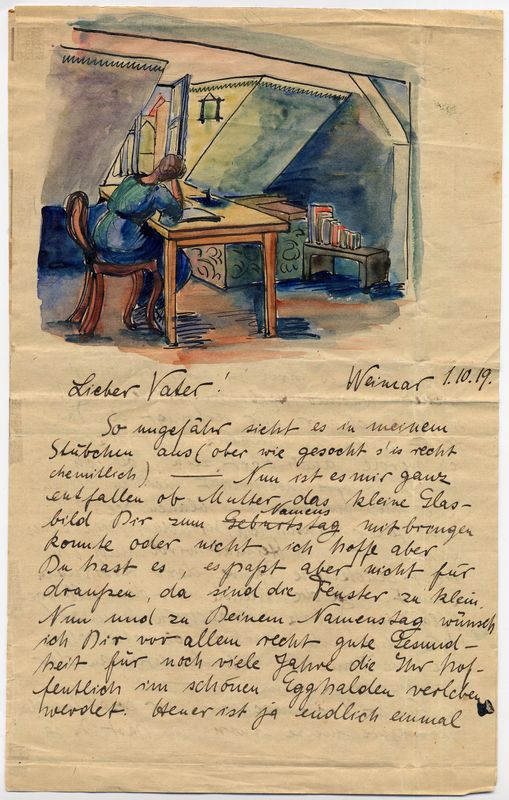 Lieber Vater! Weimar 1.10.19.
So ungefähr sieht es in meinem
Stübchen aus (ober wie gesocht s'es recht
chemitlich) — Nun ist es mir ganz
entfallen ob Mutter das kleine Glas-
bild Dir zum Geburtstag Namens mitbringen
konnte oder nicht ich hoffe aber
Du hast es, es paßt aber nicht für
draußen, da sind die Fenster zu klein.
Nun und zu Deinem Namenstag wünsch
ich Dir vor allem recht gute Gesund-
heit für noch viele Jahre die Ihr hof-
fentlich im schönen Egghalden verleben
werdet. Heuer ist ja endlich einmal